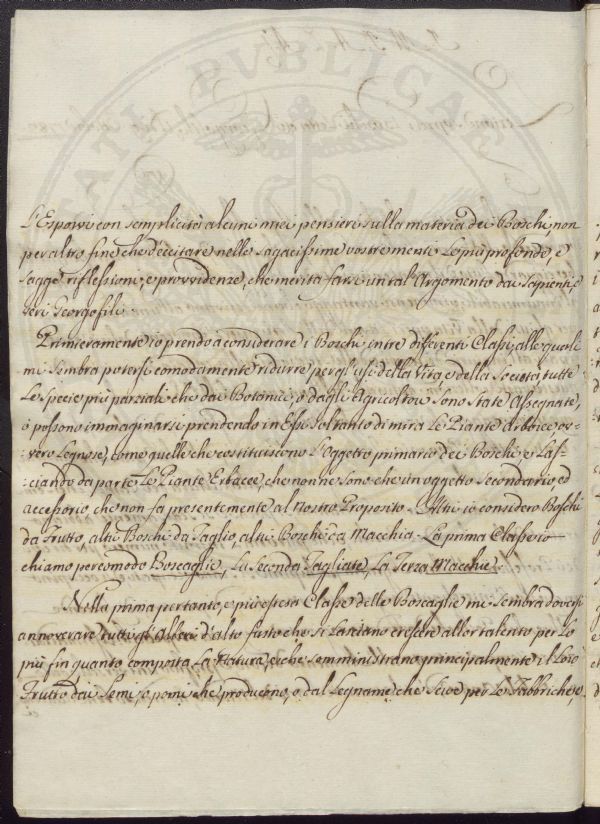 PUBLICAE
L'Esporvi con semplicità alcuni miei pensieri sulla materia dei Boschi non
per altro fine che d'eccitare nelle sagacissime vostre menti le più profonde, e
sagge riflessioni, e provvidenze, che merita farsi in tal' Argomento dai Sapienti, e
veri Georgofili.
Primieramente io prendo a considerare i Boschi in tre diferenti Classi, alle quali
mi sembra potersi comodamente ridurre per gl' usi della Vita, e della Società tutte
le specie più parziali che dai Botanici, o dagli Agricoltori sono state assegnate,
o possono immaginarsi prendendo in Essi soltanto di mira le Piante Arboree ov-
:vero Legnose, come quelle che costituiscono l'Oggetto primario dei Boschi e las-
:ciando da parte le Piante Erbacee, che non ne sono che un oggetto secondario, ed
accessorio, che non fa presentemente al nostro Proposito. Altri io considero Boschi
da Frutto, altri Boschi da Taglio, altri Boschi da Macchia. La prima Classe io
chiamo per comodo Boscaglie, La Seconda Tagliate, La Terza Macchie.
Nella prima pertanto, e più estesa Classe delle Boscaglie mi sembra doversi
annoverare tutti gl' Alberi d'alto fusto che si lasciano crescere a lor talento per lo
più fin quanto comporta la Natura, e che somministrano principalmente il loro
Frutto dai Semi, o pomi che producono, o dal Legname che serve per le Fabbriche, o